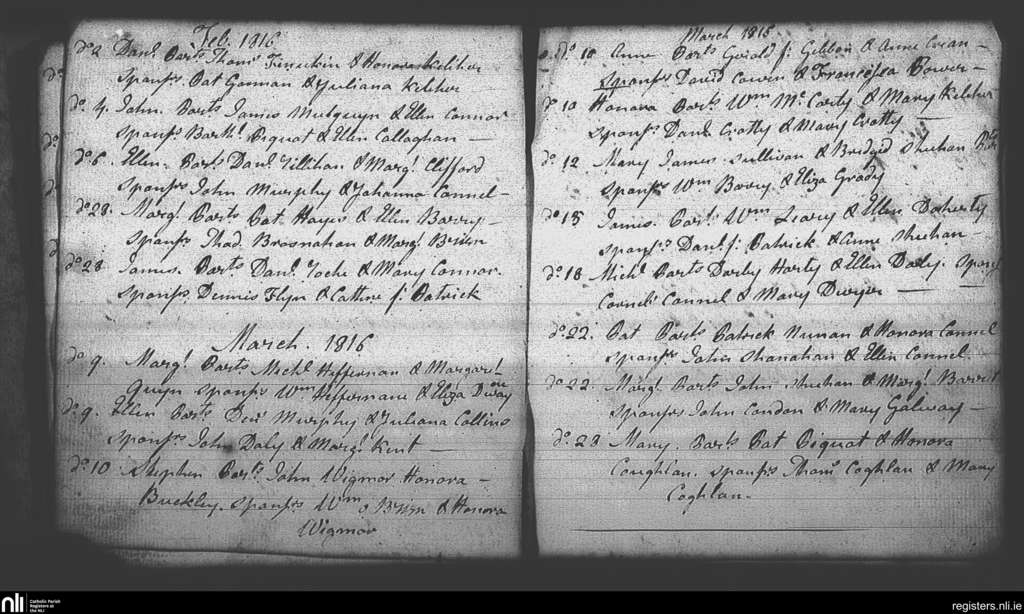 Feb. 1816
do 2 Danl. Parts Thoms Finuckin & Honora Keliher
Sponsrs Pat Gorman & Juliana Keliher
do 4. John. Parts James Mulquyn & Ellen Connor
Sponsrs Barthl. Piquot & Ellen Callaghan —
do 6. Ellen. Parts Danl Gillihan & Margt. Clifford
Sponsrs John Murphy & Johanna Connel —
do 28. Margt. Parts Pat. Hayes & Ellen Barry —
Sponsrs Thad. Brosnahan & Margt Brien
do 28 James. Parts Danl. Roche & Mary Connor.
Sponsrs Dennis Flyn & Cathne f: Patrick
March. 1816
do 9. Margt. Parts Michl Heffernan & Margaret
Quyn Sponsrs Wm Heffernane & Eliza
do 9. Ellen Parts Dens Murphy & Juliana Collins
Sponsrs John Daly & Margt. Kent —
do 10 Stephen Parts. John Wigmor Honora —
Buckley. Sponsrs Wm o Brien & Honora
Wigmor
March 1816
do 10 Anne Parts Gerald f: Gibbon & Anne —
Sponsrs David & Francesca Power —
do 10 Honora Parts Wm McCarty & Mary Keliher
Sponsrs Danl Crotty & Mary Crotty —
do 12 Mary James Sullivan & Bridget Sheehan
Sponsrs Wm Barry & Eliza Grady
do 15 James. Parts. Wm Leary & Ellen Doherty
Sponsrs Danl. f: Patrick & Anne Sheehan —
do 18 Michl Parts Darby Harty & Ellen Daly. Sponsrs
Cornels Connel & Mary Dwyer —
do 22. Pat Parts Patrick Nunan & Honora Connel
Sponsrs John Shanahan & Ellen Connel.
do 22. Margt Parts John Sheehan & Margt. Barret
Sponsrs John Condon & Mary Galway —
do 28 Mary. Parts Pat Piquot & Honora
Coughlan. Sponsrs Thoms Coghlan & Mary
Coghlan.
nli Catholic Parish
Registers at
the NLI
registers.nli.ie